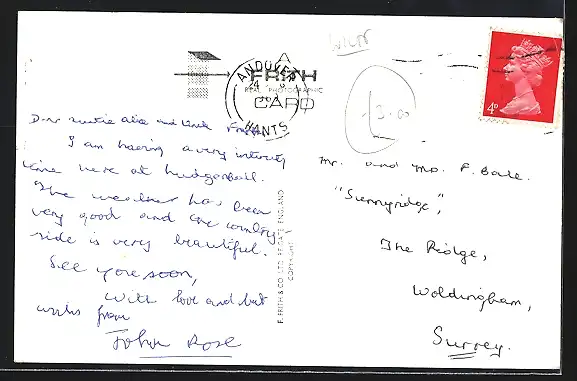 WILTS
A
FRITH
REAL PHOTOGRAPHIC
CARD
ANDOVER
HANTS
4D
£3.00
Dear Auntie Alice and Uncle Frank
I am having a very interesting
time here at
The weather has been
very good and the country
side is very beautiful.
See you soon,
With love and best
wishes from
John Rose
F. FRITH & CO. LTD. REIGATE ENGLAND
COPYRIGHT
Mr. and Mrs. F. Bale.
"Sunnyridge",
The Ridge,
Woldingham,
Surrey.